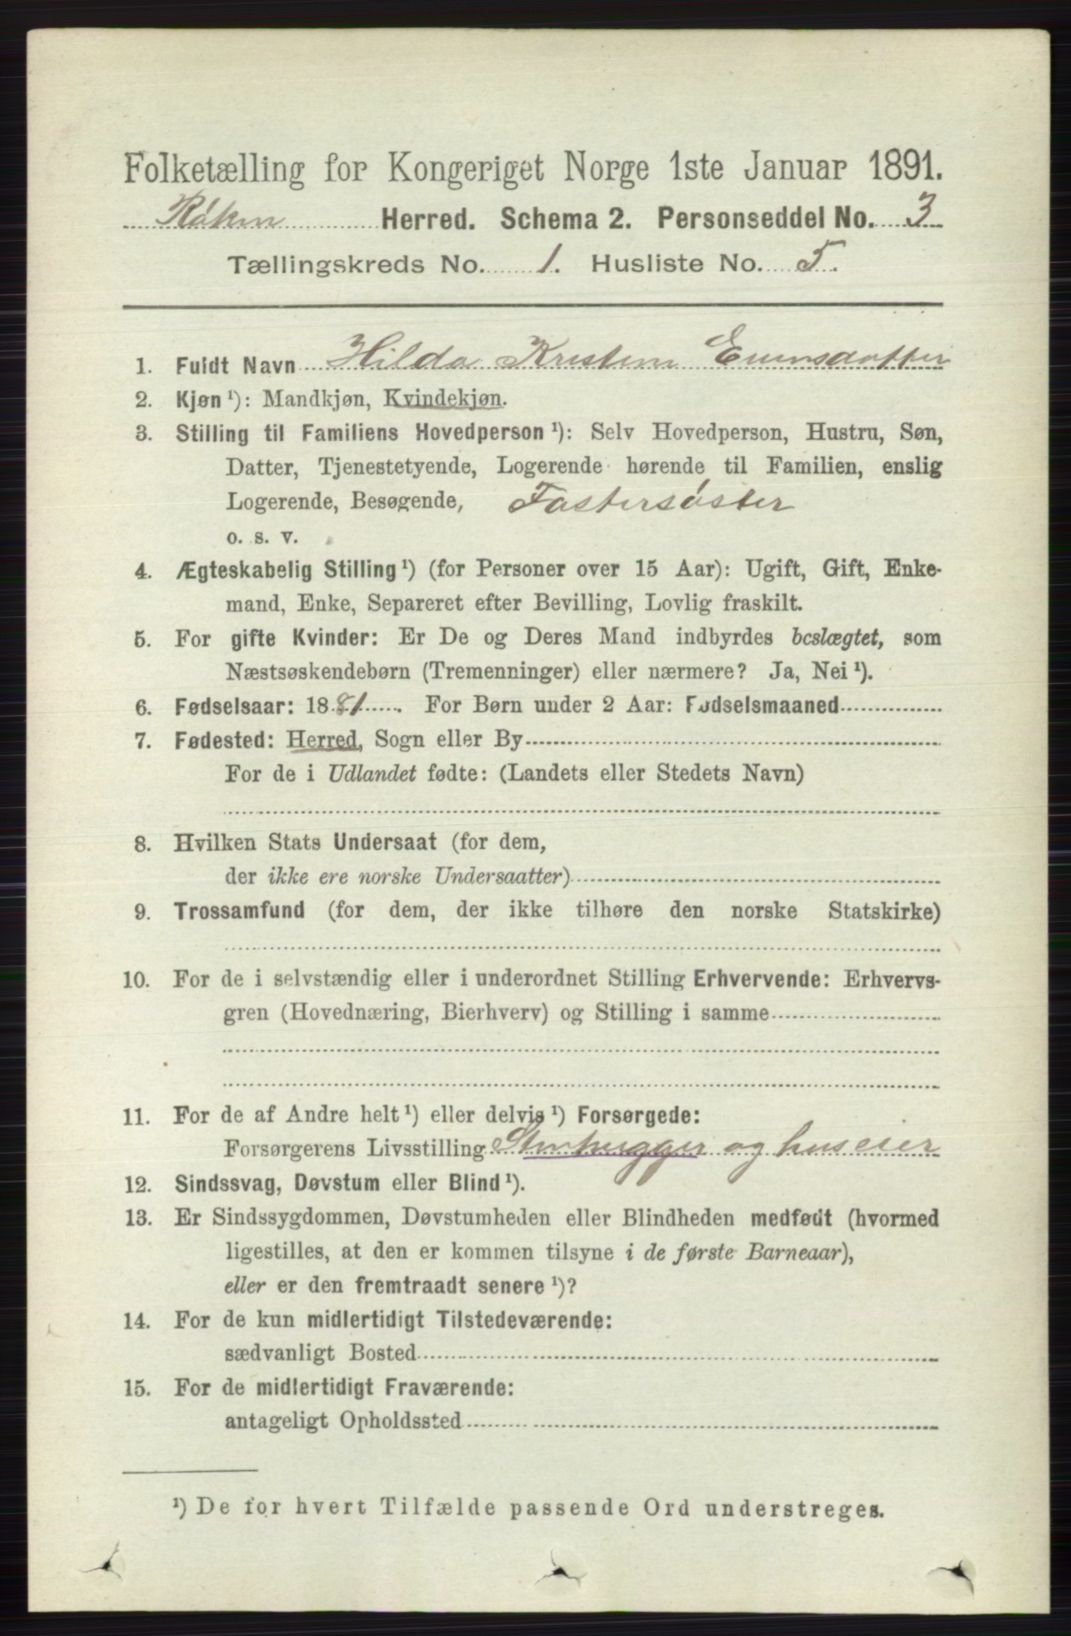 Folketælling for Kongeriget Norge 1ste Januar 1891.
Røken Herred. Schema 2. Personseddel No. 3
Tællingskreds No. 1. Husliste No. 5.
1. Fuldt Navn Hilda Kristine Evensdatter
2. Kjøn ¹): Mandkjøn, Kvindekjøn.
3. Stilling til Familiens Hovedperson ¹): Selv Hovedperson, Hustru, Søn,
Datter, Tjenestetyende, Logerende hørende til Familien, enslig
Logerende, Besøgende, Fostersøster
o. s. v.
4. Ægteskabelig Stilling ¹) (for Personer over 15 Aar): Ugift, Gift, Enke-
mand, Enke, Separeret efter Bevilling, Lovlig fraskilt.
5. For gifte Kvinder: Er De og Deres Mand indbyrdes beslægtet, som
Næstsøskendebørn (Tremenninger) eller nærmere? Ja, Nei ¹).
6. Fødselsaar: 1881. For Børn under 2 Aar: Fødselsmaaned
7. Fødested: Herred, Sogn eller By
For de i Udlandet fødte: (Landets eller Stedets Navn)
8. Hvilken Stats Undersaat (for dem,
der ikke ere norske Undersaatter)
9. Trossamfund (for dem, der ikke tilhøre den norske Statskirke)
10. For de i selvstændig eller i underordnet Stilling Erhvervende: Erhvervs-
gren (Hovednæring, Bierhverv) og Stilling i samme
11. For de af Andre helt ¹) eller delvis ¹) Forsørgede:
Forsørgerens Livsstilling Stenhugger og huseier
12. Sindssvag, Døvstum eller Blind ¹).
13. Er Sindssygdommen, Døvstumheden eller Blindheden medfødt (hvormed
ligestilles, at den er kommen tilsyne i de første Barneaar),
eller er den fremtraadt senere ¹)?
14. For de kun midlertidigt Tilstedeværende:
sædvanligt Bosted
15. For de midlertidigt Fraværende:
antageligt Opholdssted
¹) De for hvert Tilfælde passende Ord understreges.